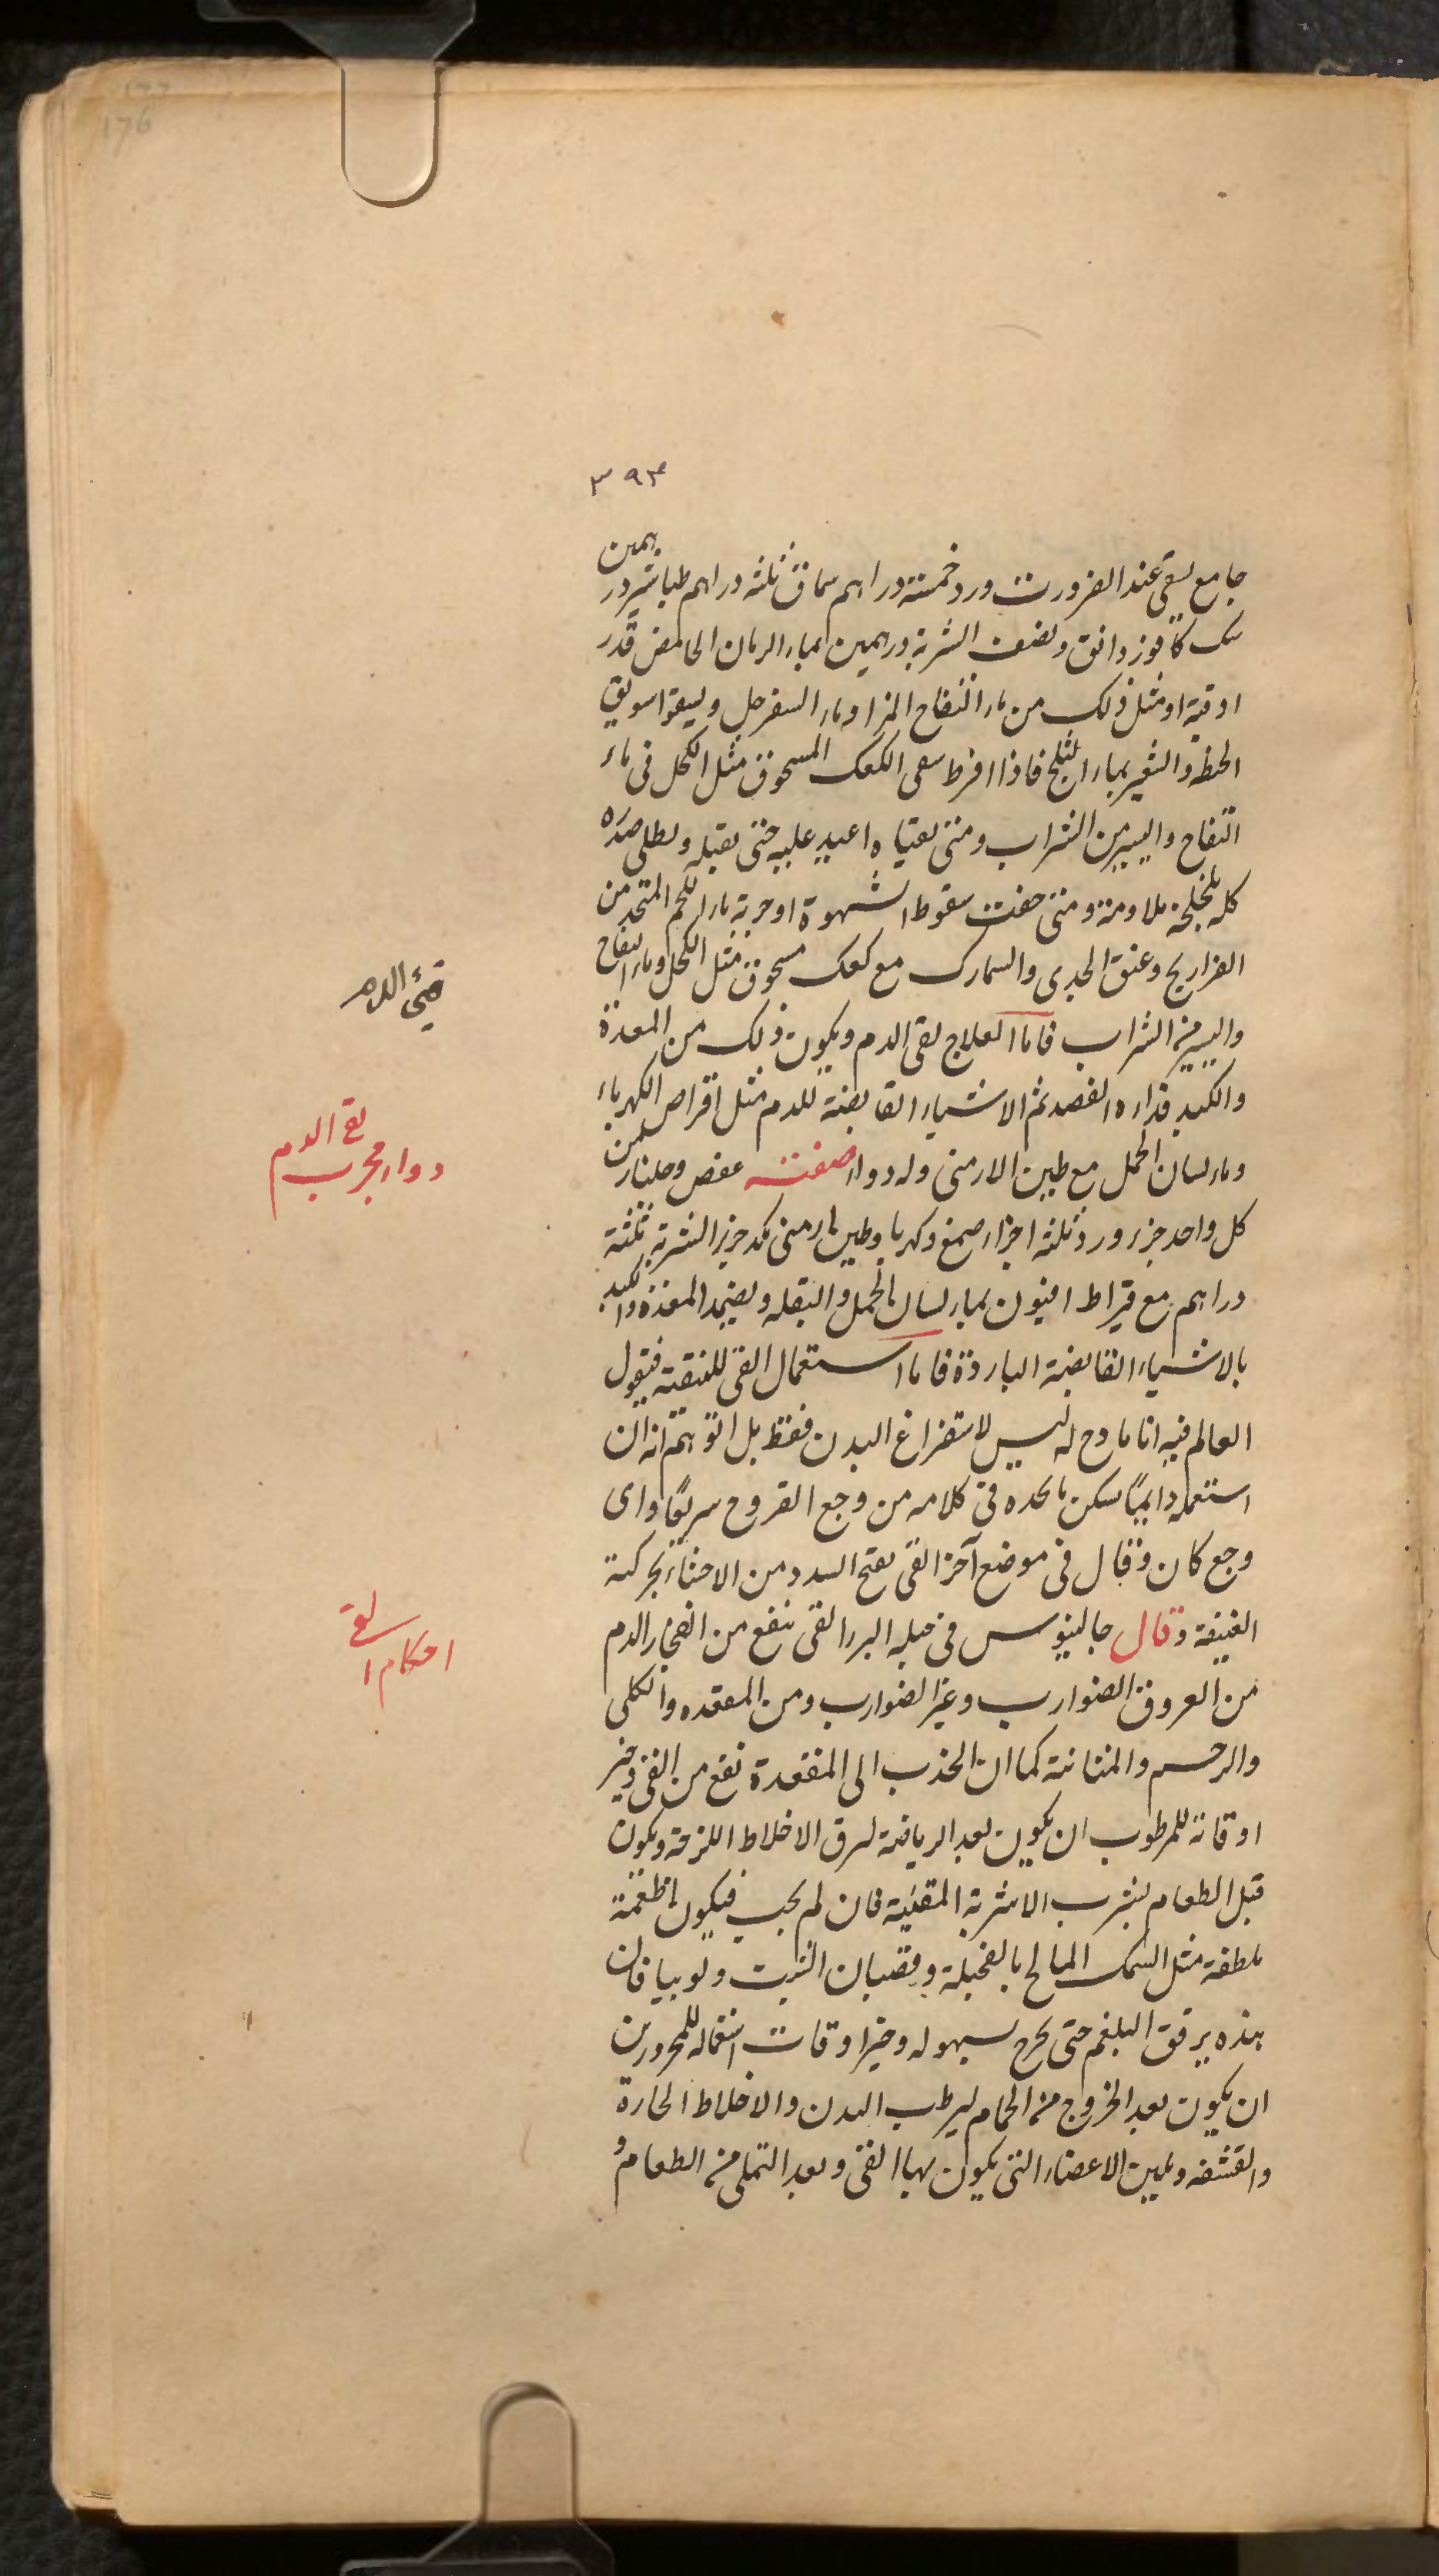 176
٣٩٣
جامع لقى عند الضرورت ورد خمسة دراهم سماق ثلثه دراهم طباشير درهمين
سك كافور دانق ونصف الشربة درهمين بماء الرمان الحامض قدر
اوقية او مثل ذلك من ماء التفاح المز او ماء السفرجل وليقوا سويق
الحنطه والشعير بماء الثلج فاذا افرط سقى الكعك المسحوق مثل الكحل فى ماء
التفاح واليسير من الشراب ومتى تقياه اعيد عليه حتى يقبله ويطلى صدره
كله بلخلخة ملاومة ومتى خفت سقوط الشهوة اوجر به ماء اللحم المتخذ من
الفراريج وعنق الجدى والسمارك مع كعك مسحوق مثل الكحل وماء التفاح
واليسير من الشراب فاما العلاج لقى الدم ويكون ذلك من المعدة
والكبد فداره الفصد ثم الاشياء القابضة للدم مثل اقراص الكهرباء
وماء لسان الحمل مع طين الارمنى وله دواء صفته عفص وجلنار من
كل واحد جزء ورد ثلثه اجزاء صمغ وكهربا وطين ارمنى مكد جزء الشربة ثلثة
دراهم مع قيراط افيون بماء لسان الحمل والبقله ويضمد المعدة والكبد
بالاشياء القابضة الباردة فاما استعمال القى للتنقية فيقول
العالم فيه انا مادح له ليس لاستفراغ البدن فقط بل اتوهم انه ان
استعمله دايمًا سكن ما يحده فى كلامه من وجع القروح سريعًا واى
وجع كان وقال فى موضع آخر القى يفتح السدد من الاحشاء بحركته
العنيفة وقال جالينوس فى حيله البرء القى ينفع من انفجار الدم
من العروق الضوارب وغير الضوارب ومن المعقده والكلى
والرحم والمثانة كما ان الجذب الى المقعدة نفع من القى وخير
اوقاته للمرطوب ان يكون بعد الرياضة لبرق الاخلاط اللزجة ويكون
قبل الطعام بشرب الاشربة المقيئة فان لم يجب فيكون باطعمة
ملطفة مثل السمك المالح بالفجيلة وقضبان الشبت ولوبيا فان
هذه يرقق البلغم حتى يخرج بسهوله وخير اوقات استعماله للمحرورين
ان يكون بعد الخروج من الحمام ليرطب البدن والاخلاط الحارة
والقشفه ويلين الاعضاء التى يكون بها القى وبعد التملى من الطعام و
قيئ الدم
لقى الدم
دواء مجرب
احكام القى